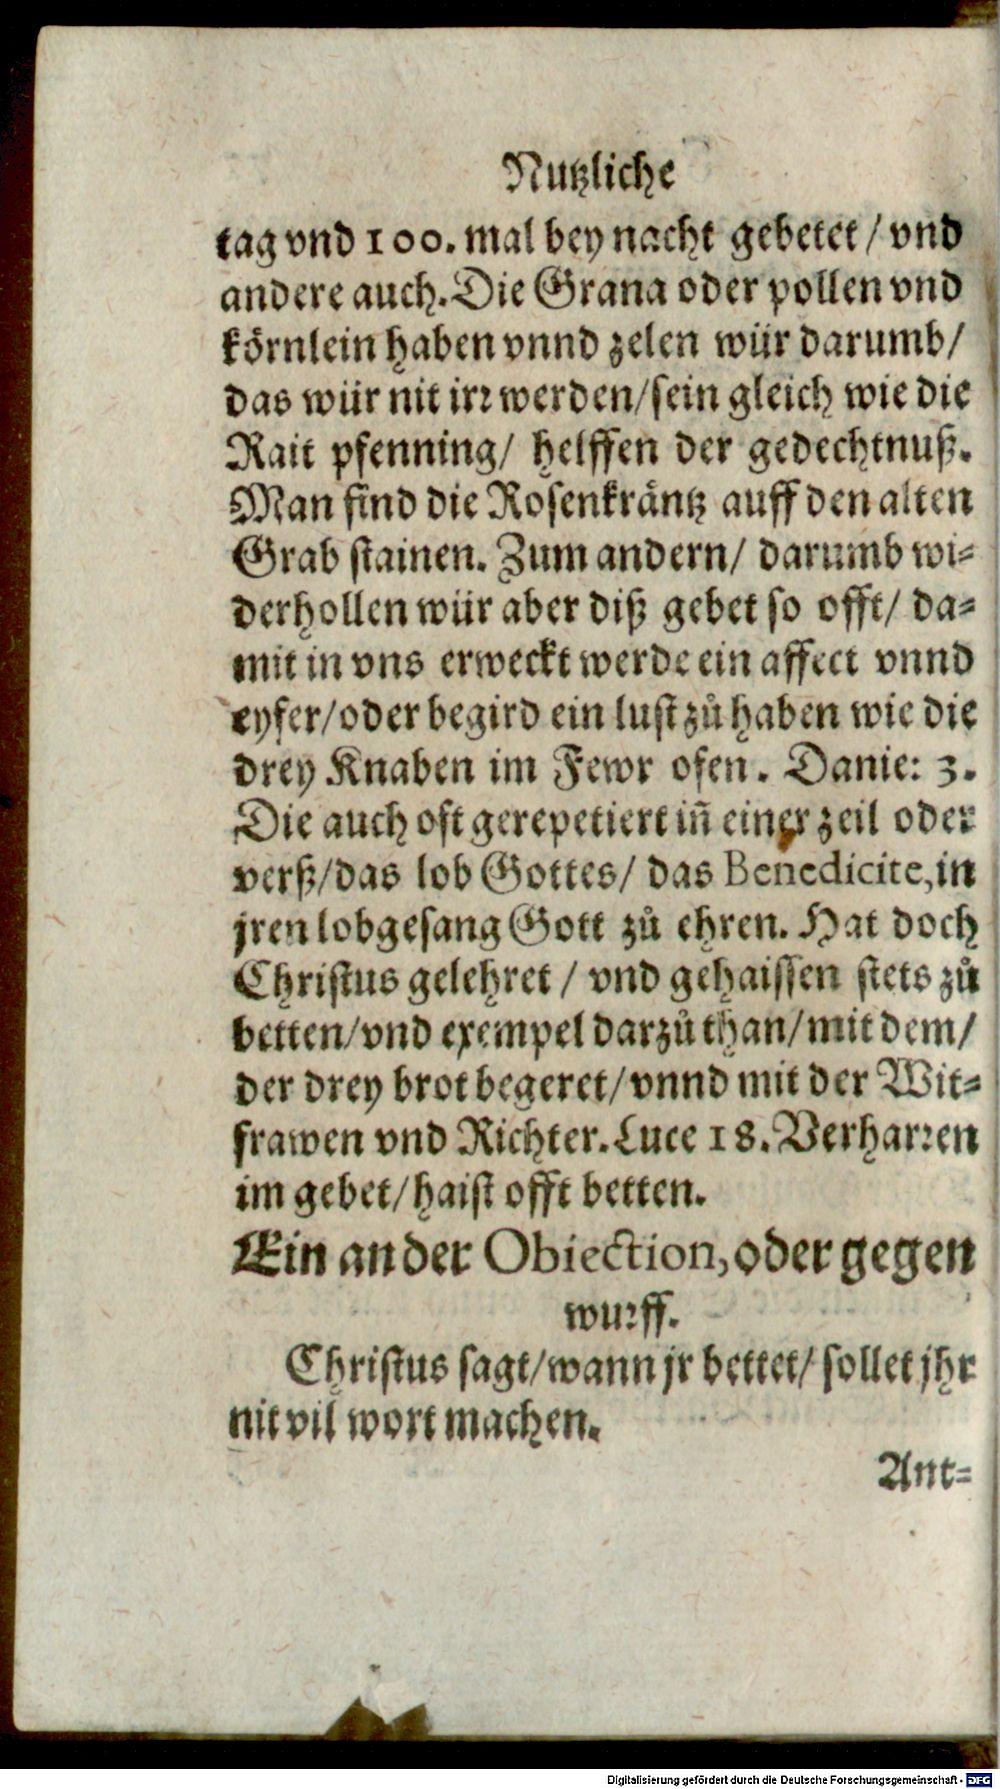 Nutzliche
tag vnd 100. mal bey nacht gebetet / vnd
andere auch. Die Grana oder pollen vnd
körnlein haben vnnd zelen wür darumb /
das wür nit irr werden / sein gleich wie die
Rait pfenning / helffen der gedechtnuß.
Man find die Rosenkräntz auff den alten
Grab stainen. Zum andern / darumb wi-
derhollen wür aber diß gebet so offt / da-
mit in vns erweckt werde ein affect vnnd
eyfer / oder begird ein lust zů haben wie die
drey Knaben im Fewr ofen. Danie: 3.
Die auch oft gerepetiert iñ einer zeil oder
verß / das lob Gottes / das Benedicite, in
jren lobgesang Gott zů ehren. Hat doch
Christus gelehret / vnd gehaissen stets zů
betten / vnd exempel darzů than / mit dem /
der drey brot begeret / vnnd mit der Wit-
frawen vnd Richter. Luce 18. Verharren
im gebet / haist offt betten.
Ein ander Obiection, oder gegen
wurff.
Christus sagt / wann jr bettet / sollet jhr
nit vil wort machen.
Ant-
Digitalisierung gefördert durch die Deutsche Forschungsgemeinschaft - DFG